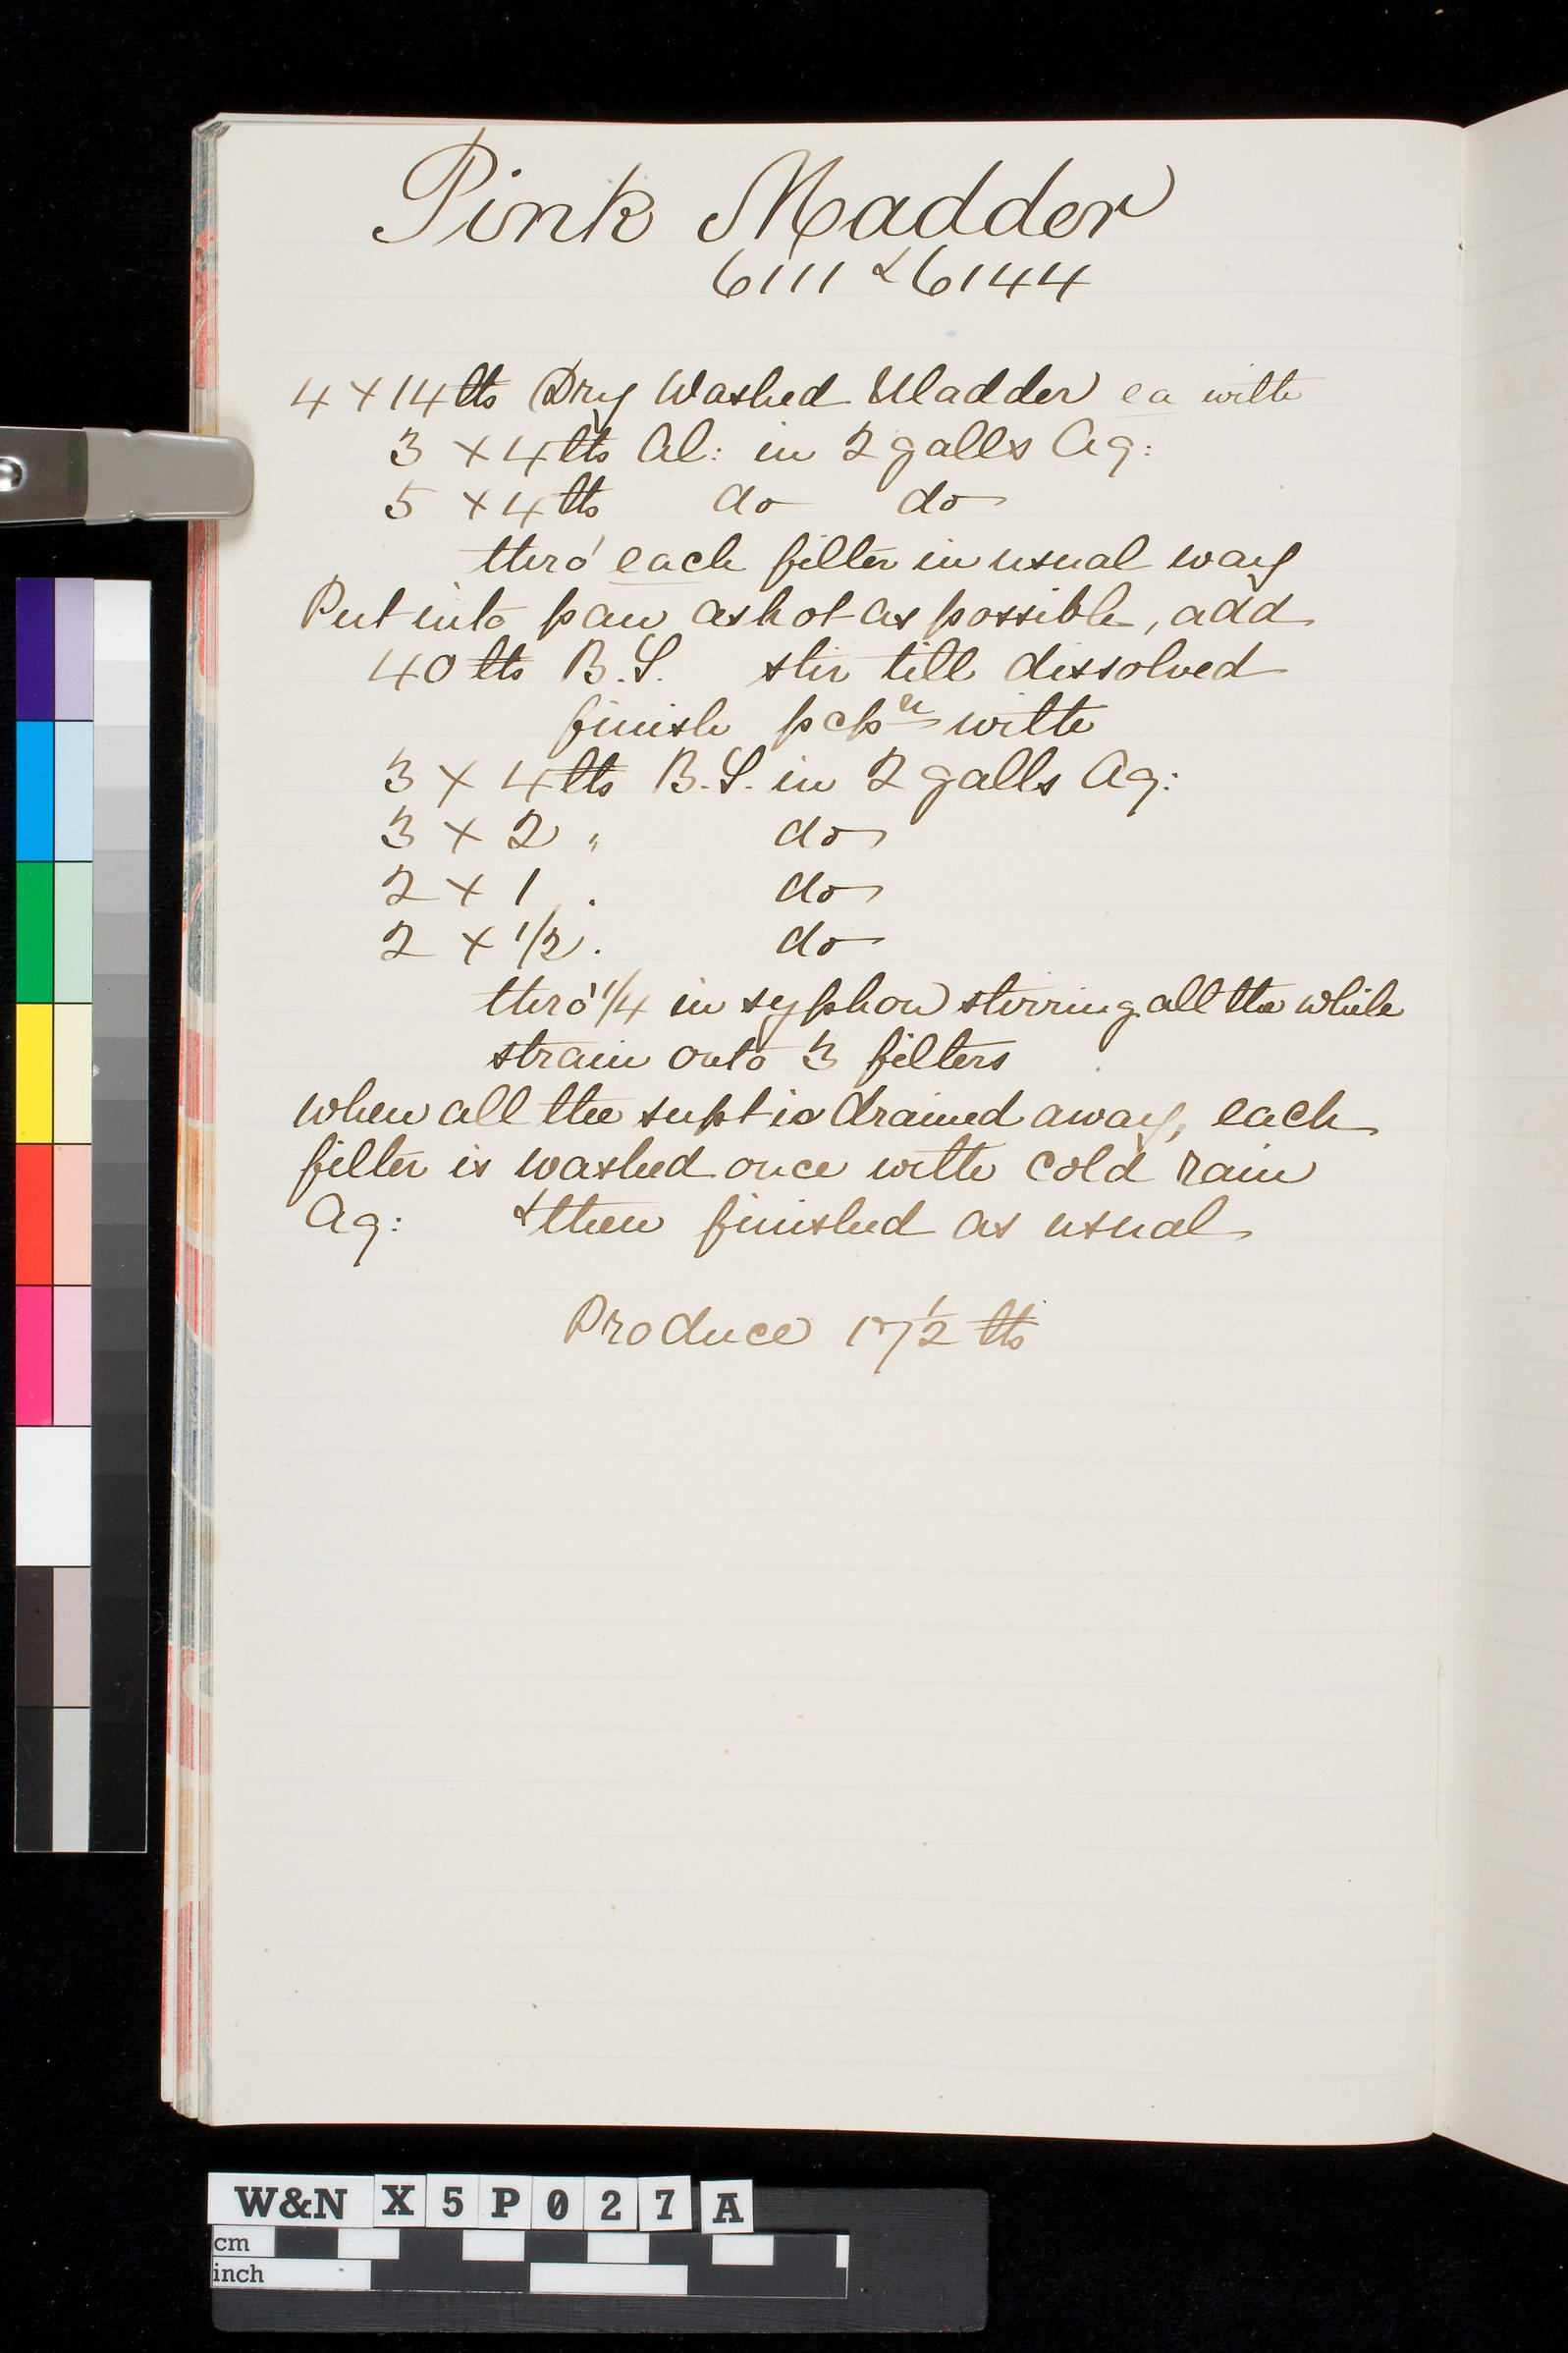 Pink Madder
6111 & 6144
4 × 14 lbs Dry Washed Madder ea with
3 × 4 lbs Al: in 2 galls Aq:
5 × 4 lbs do do
thro' each filter in usual way
Put into pan as hot as possible, add
40 lbs B.S. stir till dissolved
finish pcpn with
3 × 4 lbs B.S. in 2 galls Aq:
3 × 2 " do
2 × 1 . do
2 × 1/2 . do
thro' 1/4 in syphon stirring all the while
strain onto 3 filters
when all the supt is drained away, each
filter is washed once with cold rain
Aq: & then finished as usual
Produce 17 1/2 lbs
W&N X 5 P 0 2 7 A
cm
inch